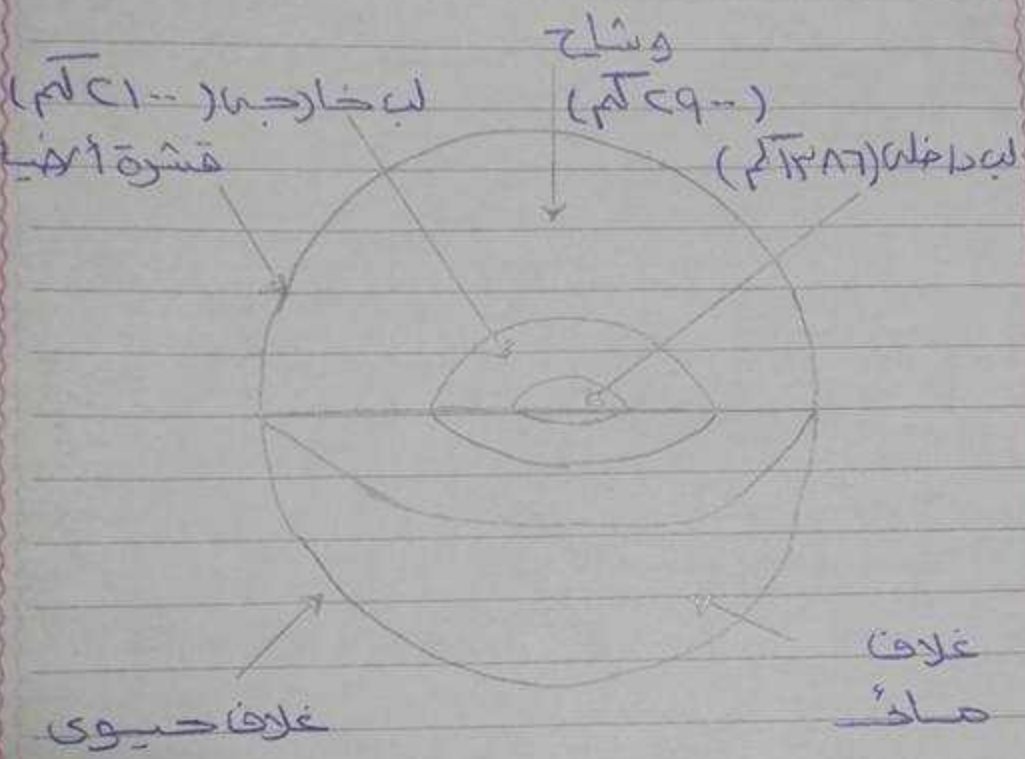 وشاح
(٢٩٠٠ كم)
لب خارجى (٢١٠٠ كم)
لب داخلى (١٣٨٦ كم)
قشرة أرضية
غلاف
مائى
غلاف حيوى